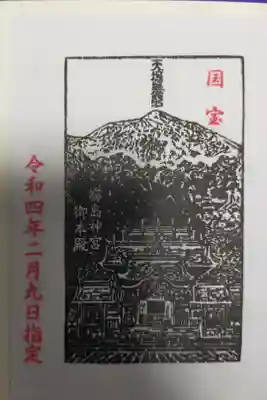 国宝
霧島神宮
御本殿
令和四年二月九日指定